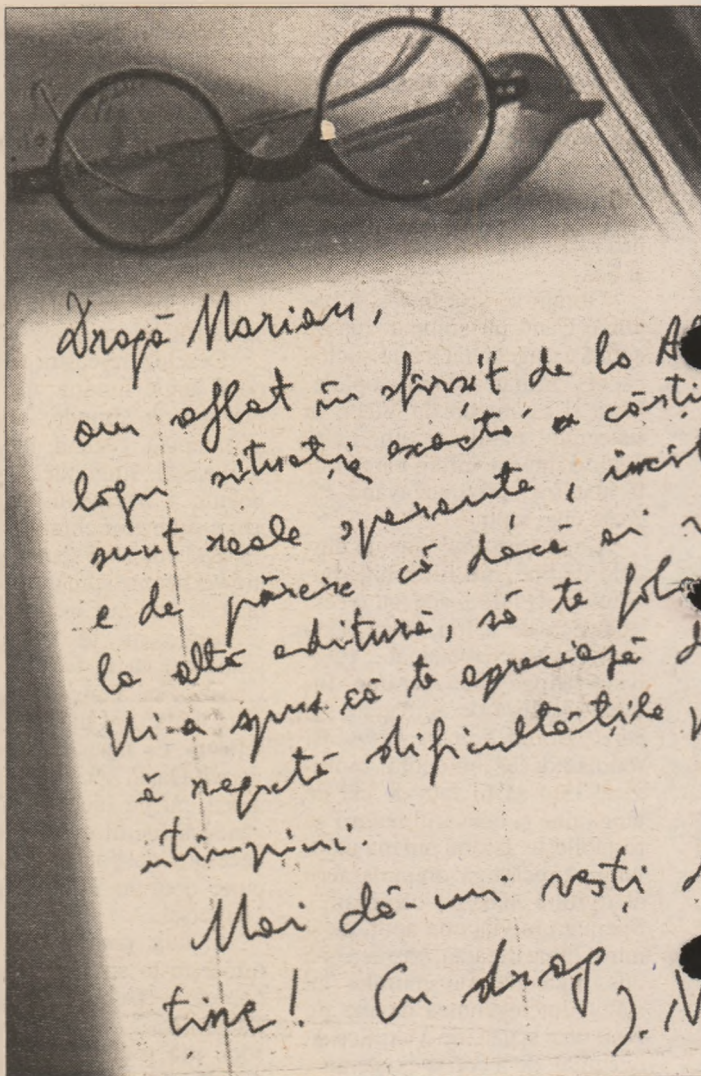 Dragă Marian,
am aflat în sfîrșit de la Al
logu situația exactă a cărții
sunt reale speranțe, incît
e de părere că dacă ai
la altă editură, să te folo
Mi-a spus că te apreciază d
ă regretă dificultățile
întimpini.
Mai dă-mi vești d
tine! Cu drag,
J. N